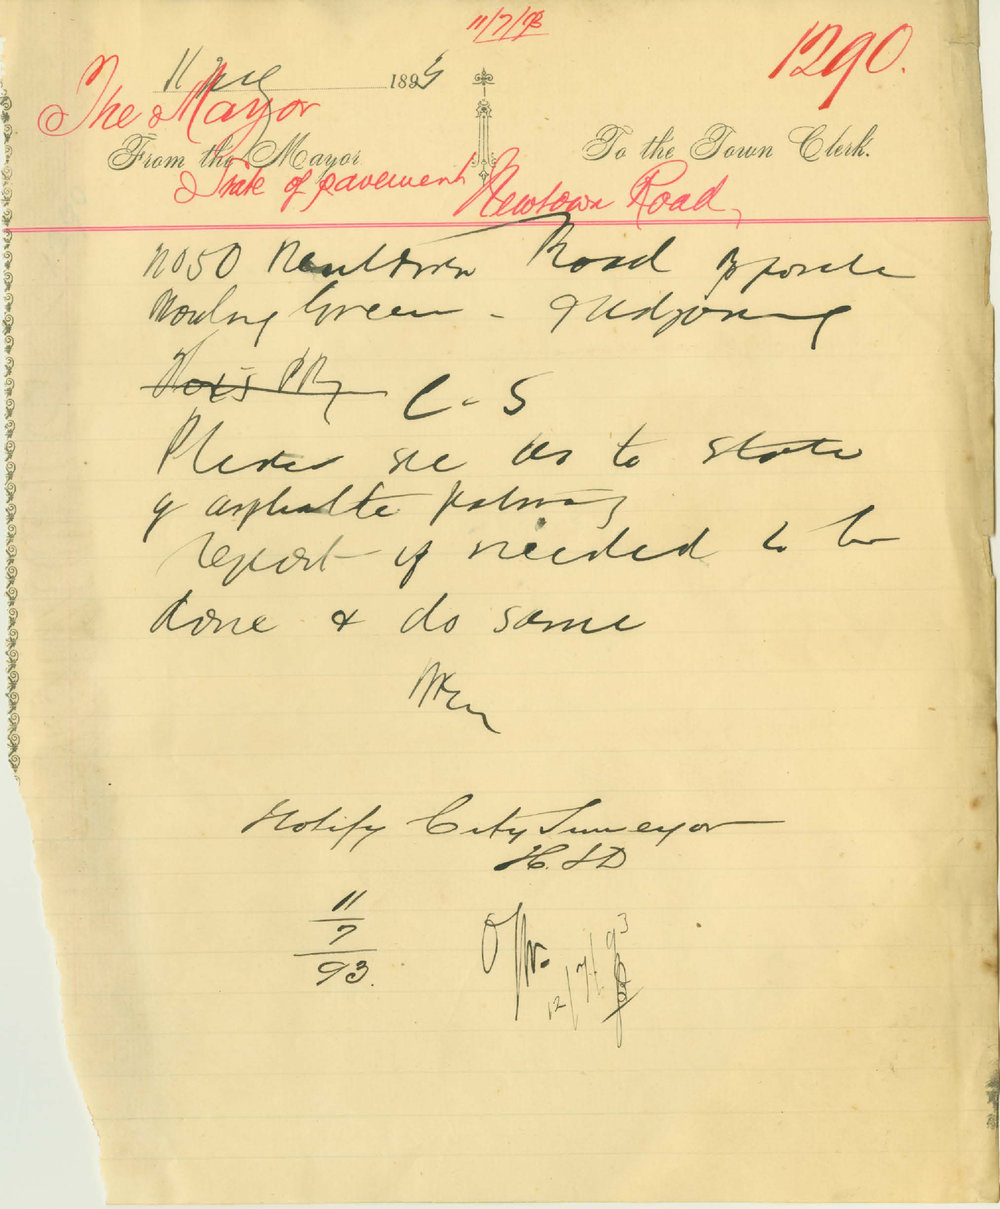 11/7/93
1290.
11 July 1893
The Mayor
From the Mayor To the Town Clerk.
State of pavement Newtown Road
No 50 Newtown Road opposite
Bowling Green - & Adjoining
C-S
Please see as to state
of asphalte pathway
report if needed to be
done & do same
Notify City Surveyor
H.S.D
11
7
93.
12/7/93